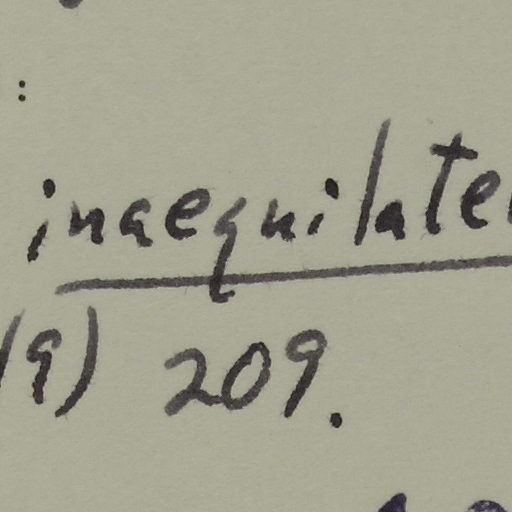 :
inaequilate
9) 209.